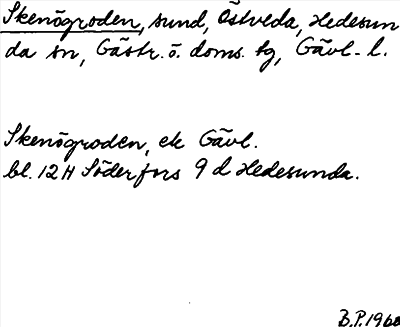 Skenögroden, sund, Östveda, Hedesun
da sn, Gästr. ö. doms. tg, Gävl. l.
Skenögroden, ek Gävl.
bl. 12 H Söderfors 9 d Hedesunda.
B.P. 1960